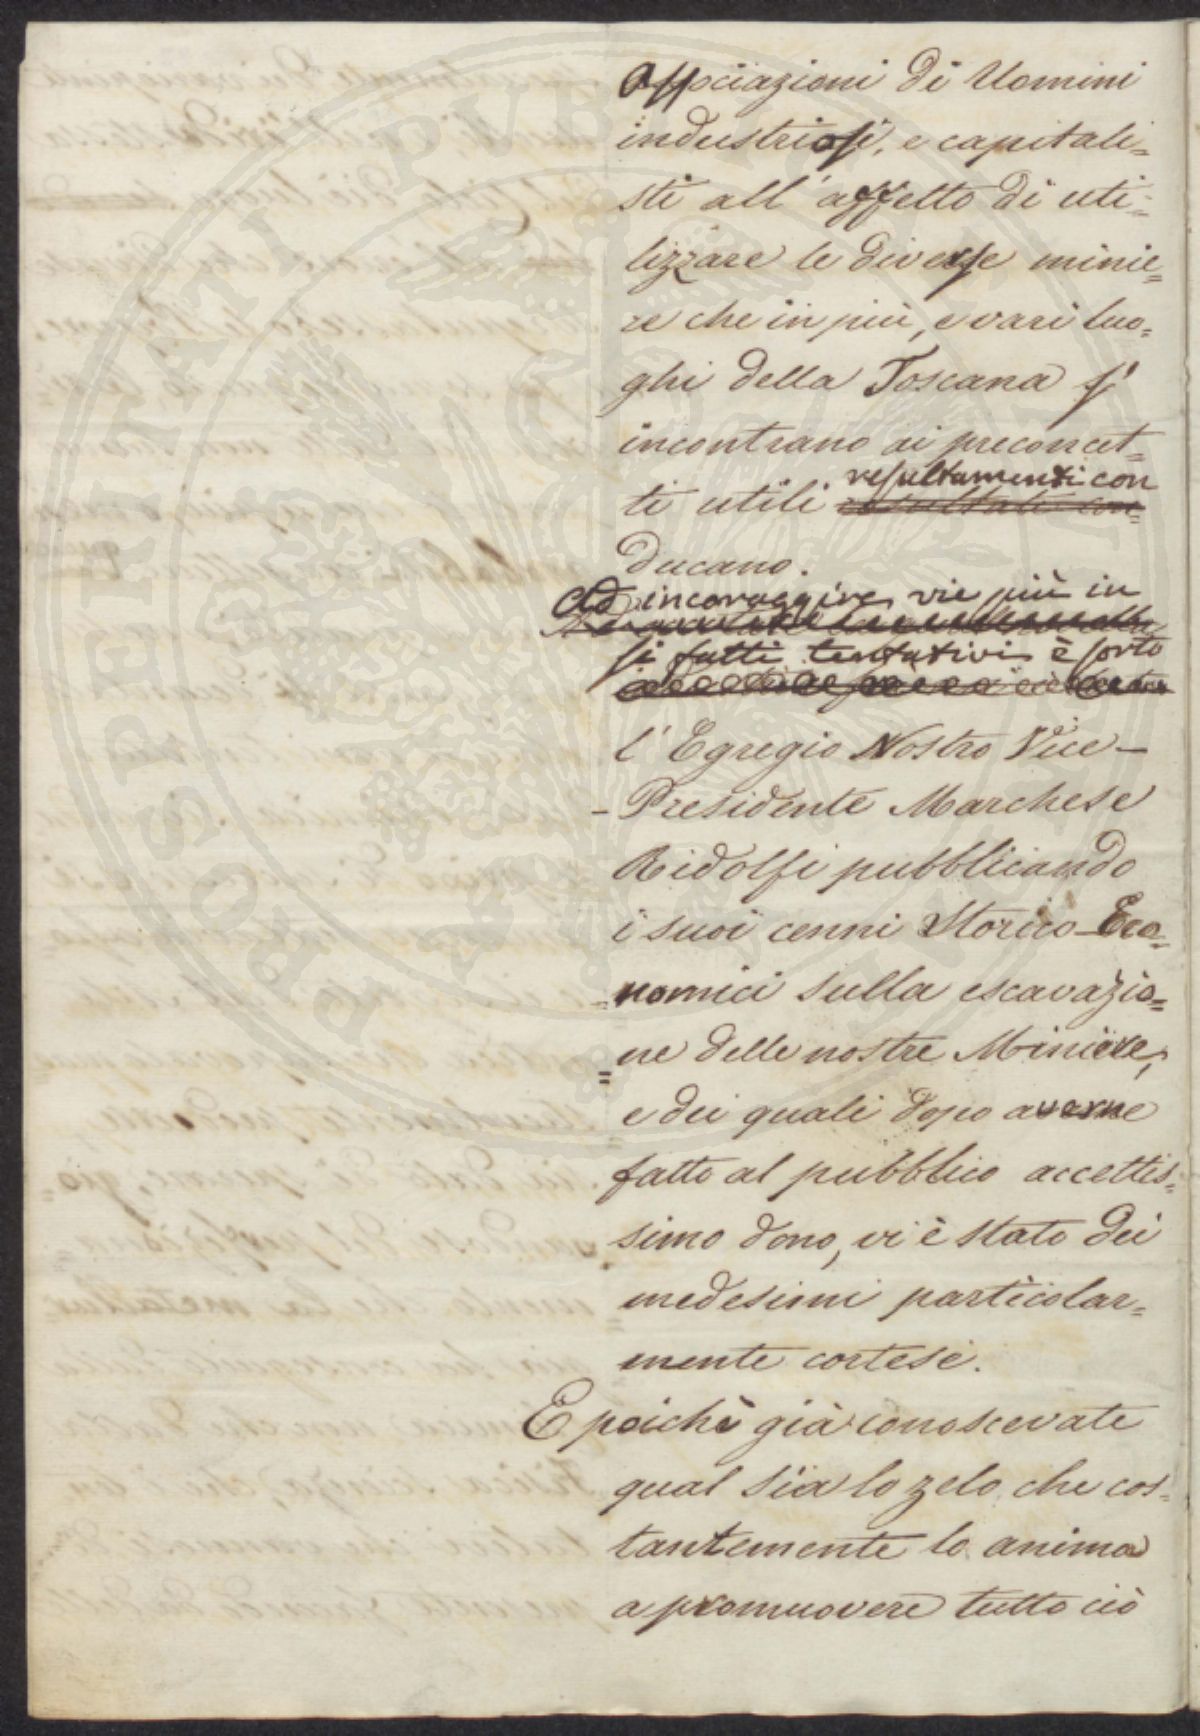 associazioni di Uomini
industriosi, e capitali=
sti all'affetto di uti=
lizzare le diverse minie=
re che in più, e vari luo=
ghi della Toscana si
incontrano ai preconcet=
resultamenti con
ti utili resultati con=
ducano.
Ad incoraggire vie più in
si fatti tentativi è sorto
l'Egregio Nostro Vice-
-Presidente Marchese
Ridolfi pubblicando
i suoi cenni Storico-Eco=
=nomici sulla escavazio=
=ne delle nostre Miniere,
e dei quali dopo averne
fatto al pubblico accettis=
simo dono, vi è stato dei
medesimi particolar=
mente cortese.
E poichè già conoscevate
qual sia lo zelo che cos=
tantemente lo anima
a promuovere tutto ciò
PROSPERITATI PUBLICAE